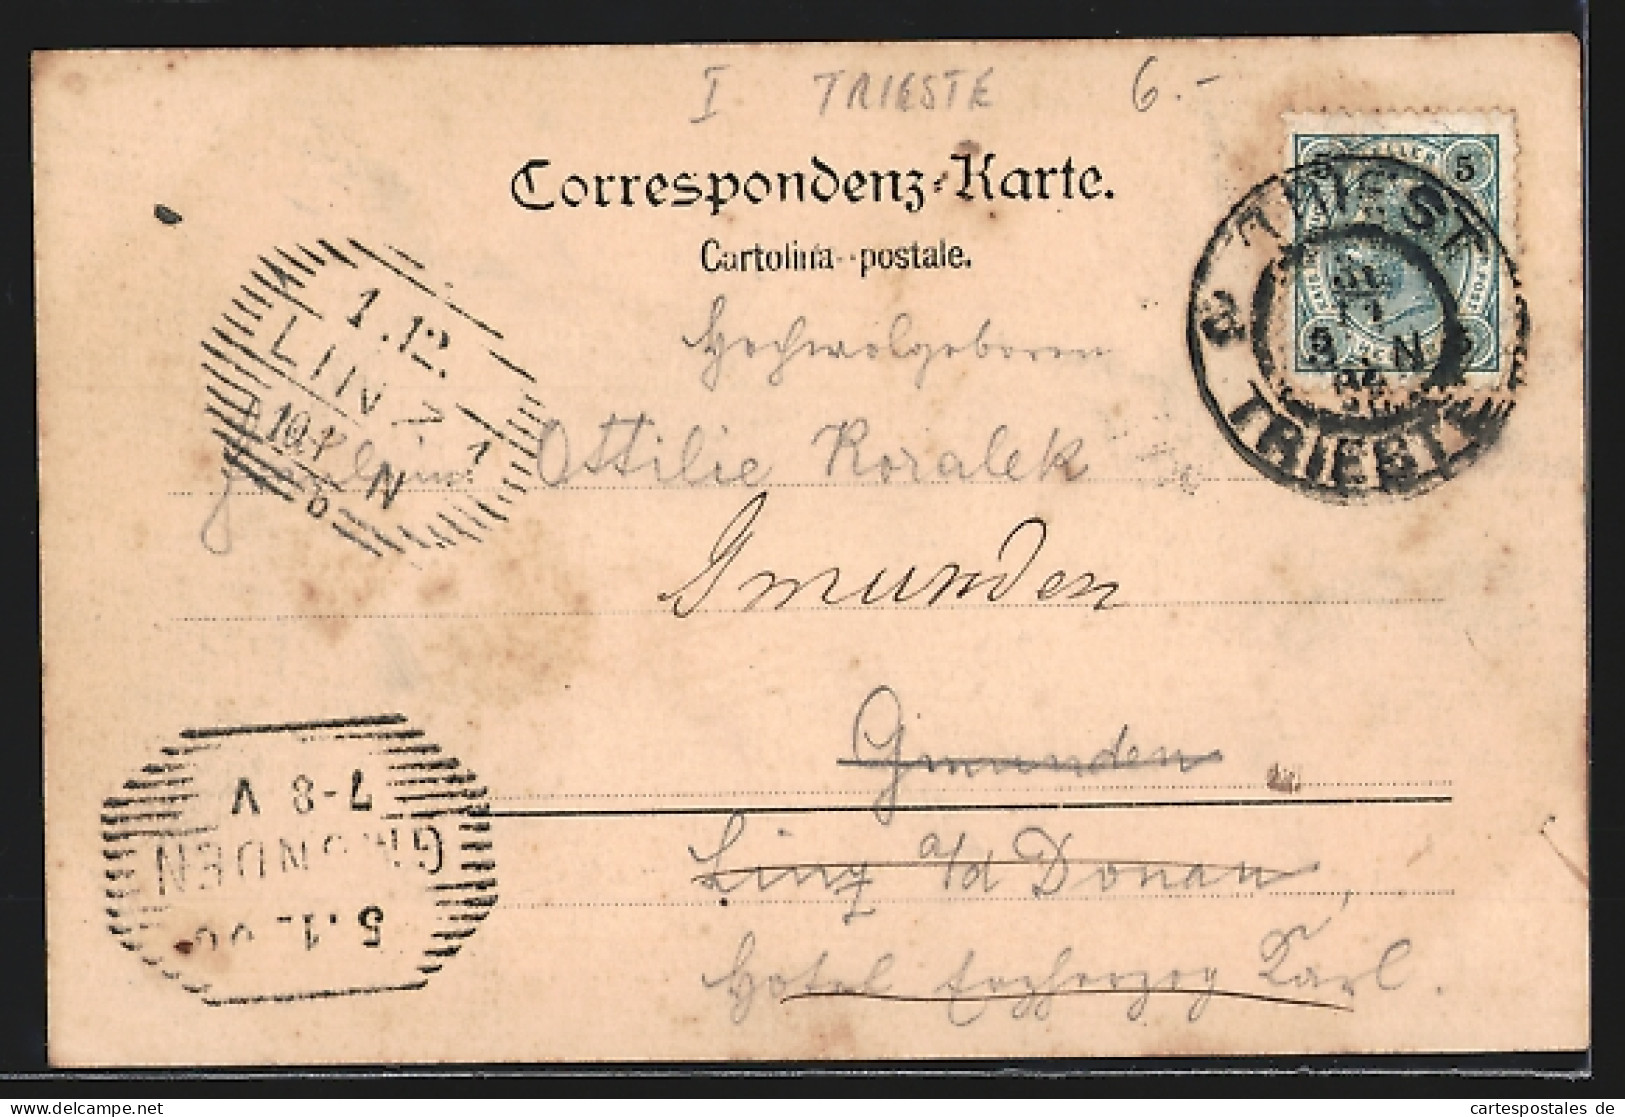 I TRIESTE 6.-
Correspondenz-Karte.
Cartolina postale.
5 HELLER 5
TRIEST
9 N
TRIESTE
1.12.
LINZ 1
N
Hochwolgeboren
Fräulein Ottilie Koralek
Gmunden
Gmunden
Linz a/d Donau
Hotel Erzherzog Karl.
7-8 V
GMUNDEN
cartespostales de